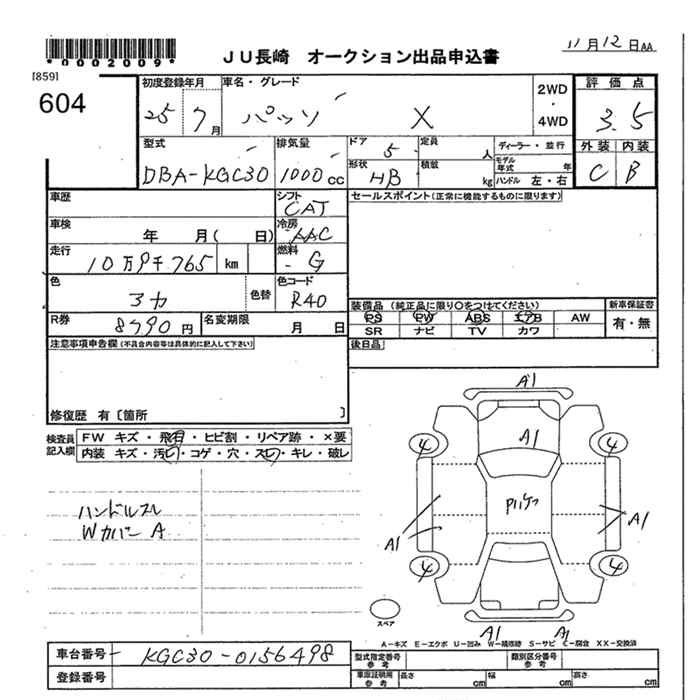 *0002009*
JU長崎 オークション出品申込書
11月12日AA
[859]
604
初度登録年月 車名・グレード 2WD・4WD 評価点
25 7月 パッソ X 3.5
型式 排気量 ドア 5 定員 人 ディーラー・並行 外装 内装
DBA-KGC30 1000cc 形状 HB 積載 kg モデル年式 年 ハンドル 左・右 C B
車歴 シフト CAT セールスポイント(正常に機能するものに限ります)
車検 年 月( 日) 冷房 AAC
走行 10万9千765 km 燃料 G
色 色替 色コード R40
装備品 (純正品に限り○をつけてください) 新車保証書
R券 8490円 名変期限 月 日 PS PW ABS エアB AW 有・無
SR ナビ TV カワ
注意事項申告欄(不具合内容等は具体的に記入して下さい) 後日品
修復歴 有〔箇所 〕
検査員記入欄 FW キズ・飛石・ヒビ割・リペア跡・×要
内装 キズ・汚れ・コゲ・穴・スレ・キレ・破レ
ハンドルスレ
Wカバー A
A1
4 A1 4
A1 A1
4 4
スペア
A1 A1
A-キズ E-エクボ U-凹み W-補修跡 S-サビ C-腐食 XX-交換済
車台番号 KGC30-0156498 型式指定番号 参考 類別区分番号 参考
登録番号 車庫証明用 参考 長さ cm 幅 cm 高さ cm